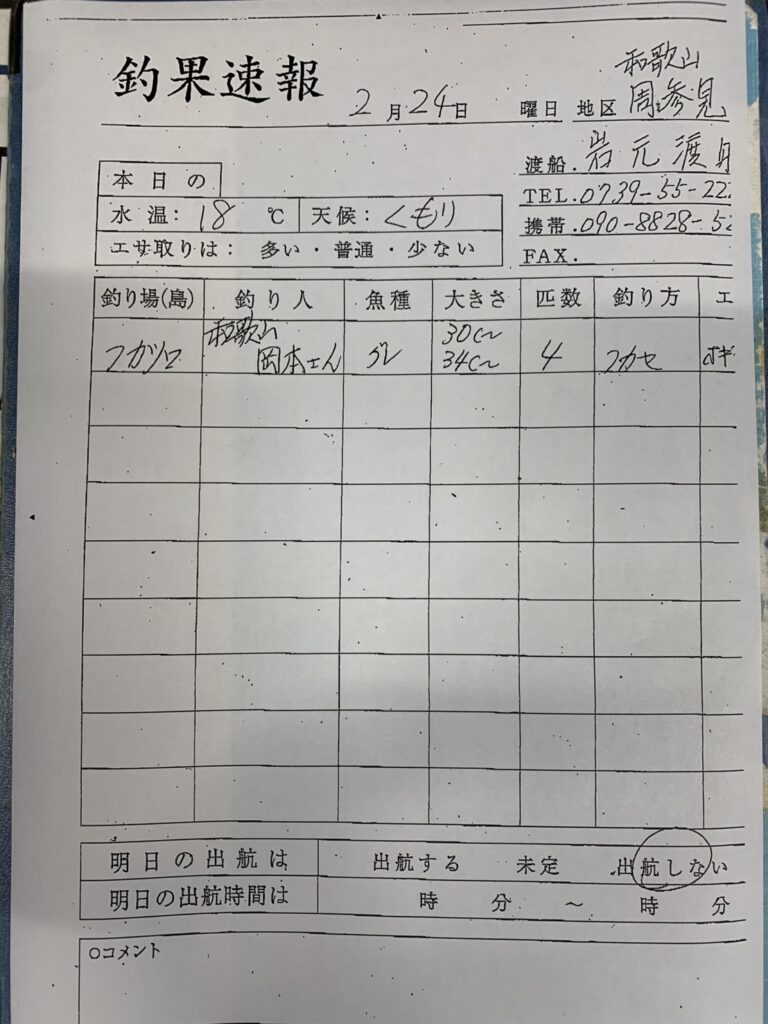 釣果速報
2月24日 曜日 地区 和歌山 周参見
渡船. 岩元渡
TEL. 0739-55-22
携帯. 090-8828-5
FAX.
本日の
水温: 18 ℃ 天候: くもり
エサ取りは: 多い・普通・少ない
釣り場(島) 釣り人 魚種 大きさ 匹数 釣り方 エ
フカツロ 和歌山 岡本さん グレ 30c~34c~ 4 フカセ オキ
明日の出航は 出航する 未定 出航しない
明日の出航時間は 時 分 ~ 時 分
○コメント